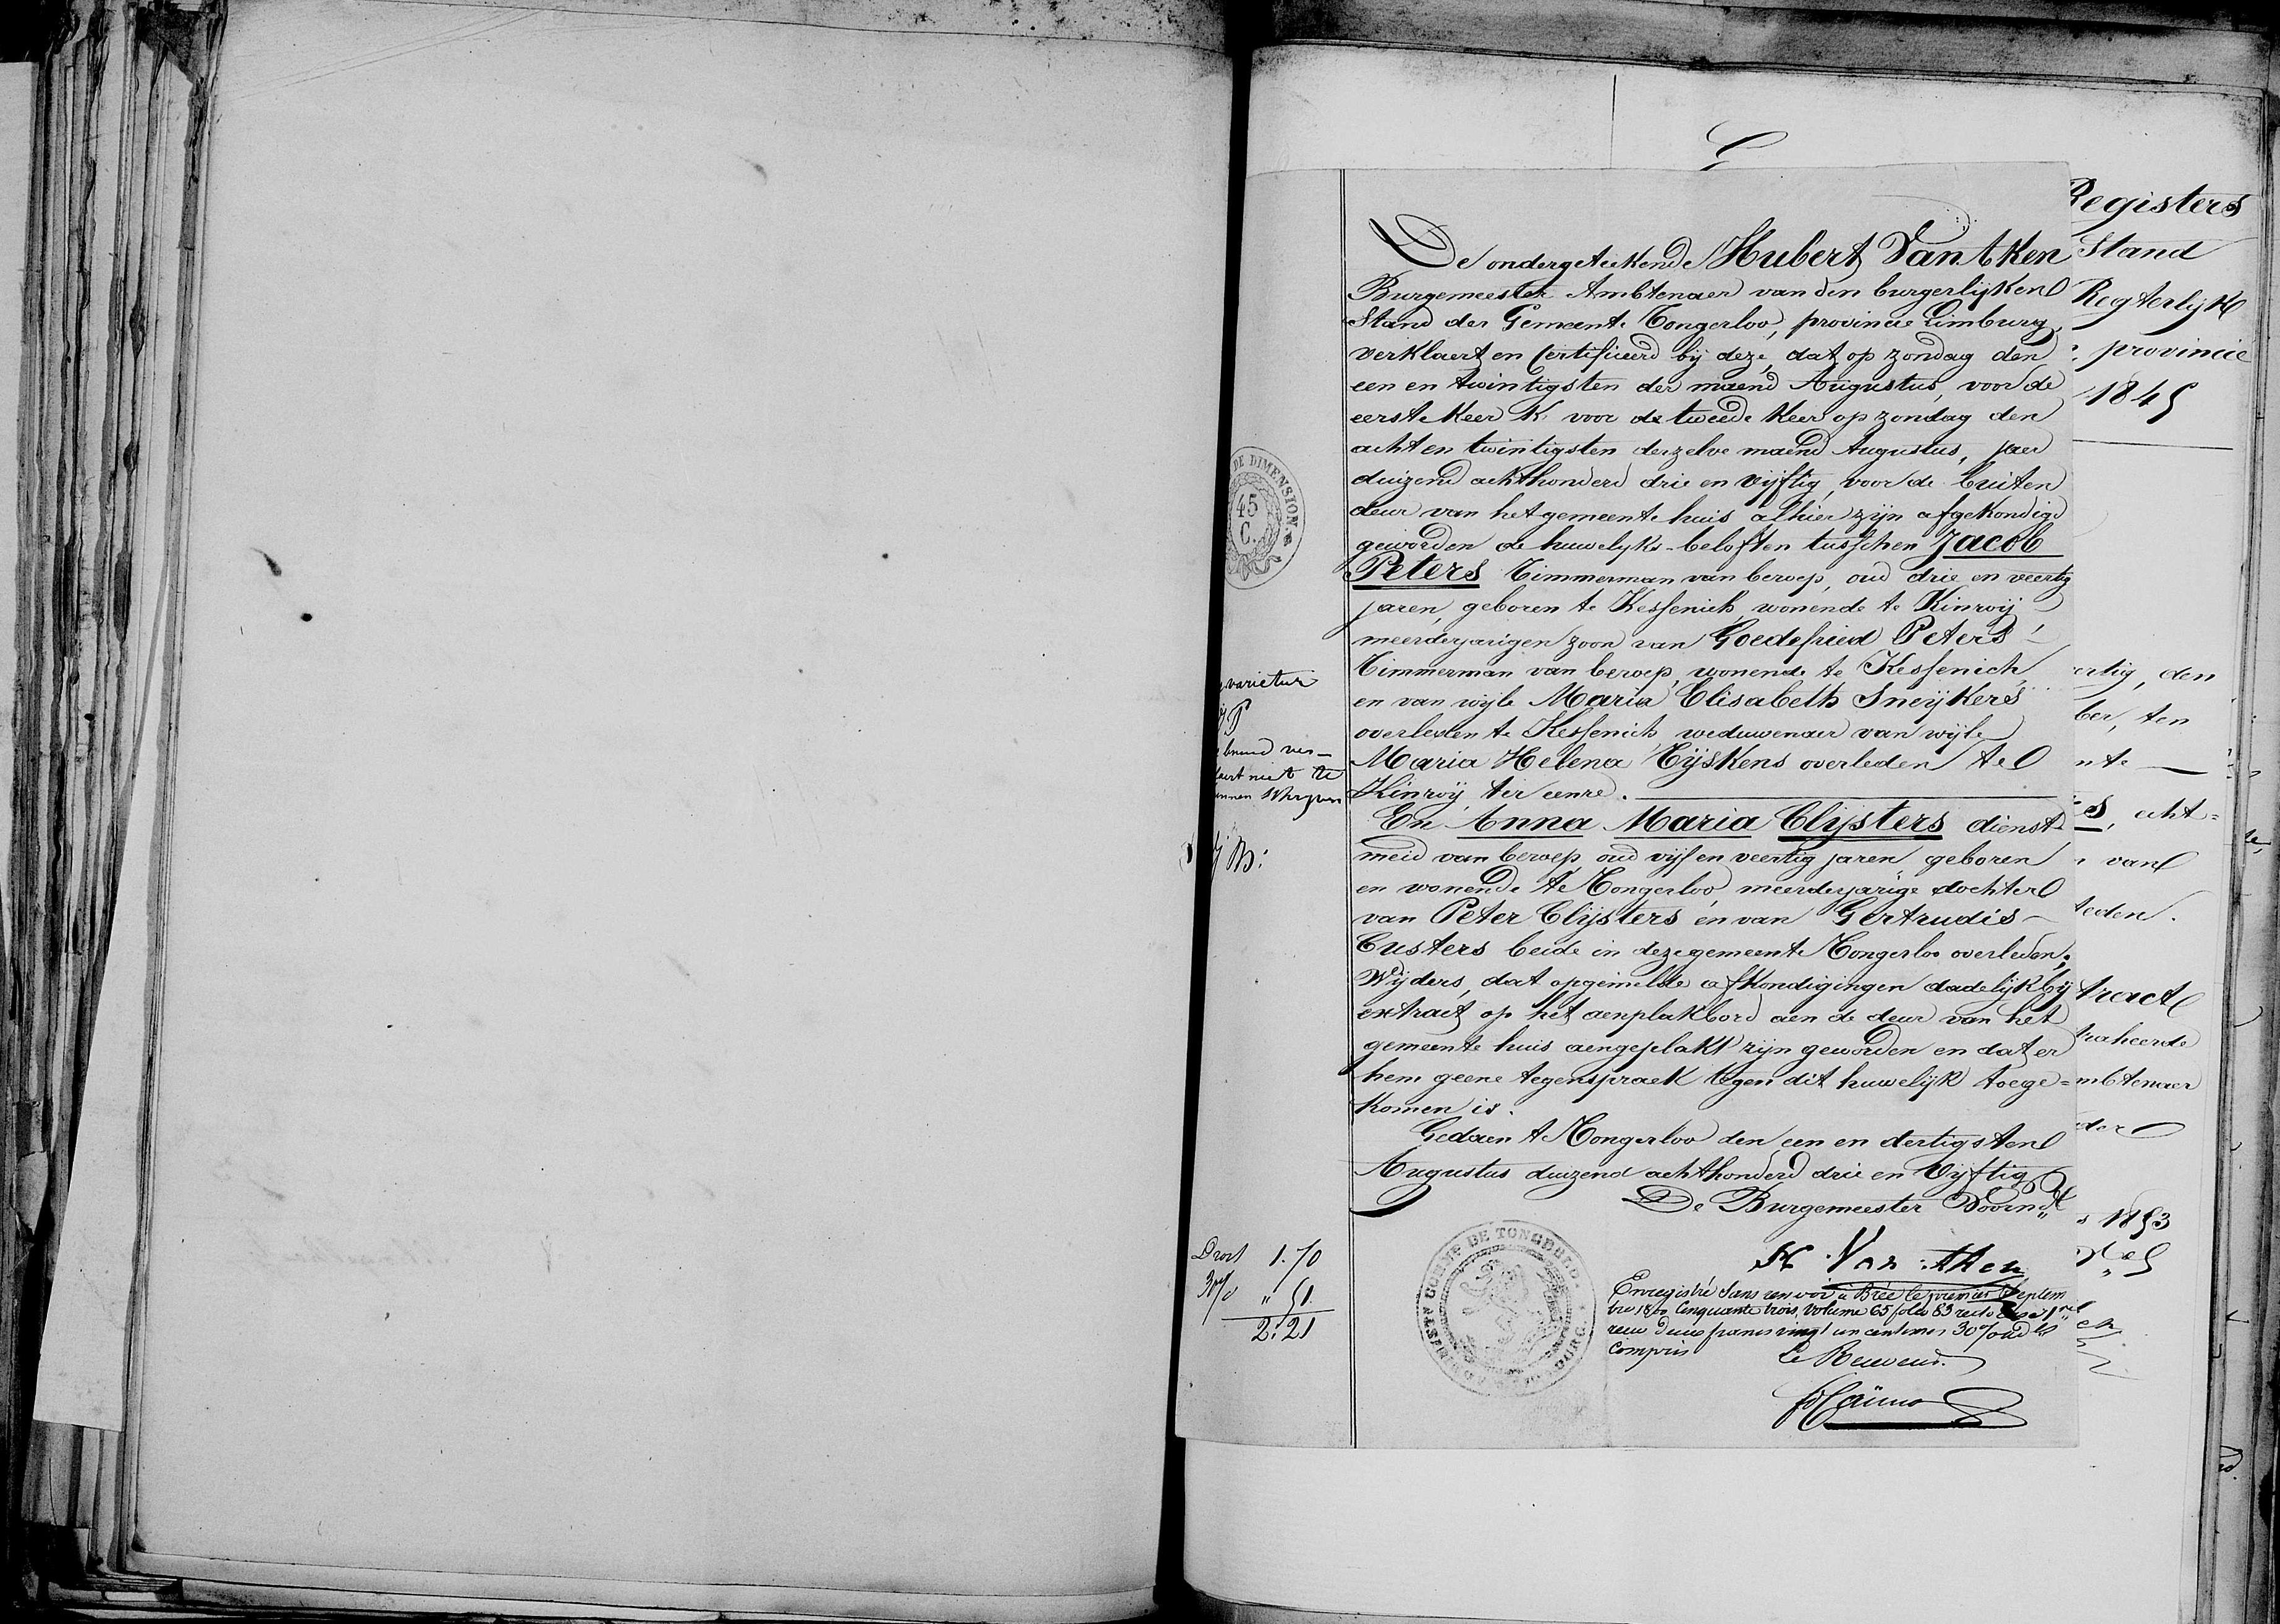 De ondergeteekende Hubert Van Aken
Burgemeester Ambtenaer van den burgerlijken
Stand der Gemeente Tongerloo, provincie Limburg,
verklaert en Certifieerd bij deze, dat op zondag den
een en twintigsten der maend Augustus, voor de
eerste keer & voor de tweede keer op zondag den
acht en twintigsten derzelve maend Augustus, jaer
duizend achthonderd drie en vijftig, voor de buiten
deur van het gemeente huis alhier zijn afgekondigd
geworden de huwelijks-beloften tusschen Jacob
Peters Timmerman van beroep, oud drie en veertig
jaren, geboren te Kessenich wonende te Kinroij
meerderjarigen zoon van Goedefried Peters
Timmerman van beroep, wonende te Kessenich,
en van wijle Maria Elisabeth Sneijkers
overleden te Kessenich weduwenaer van wijle
Maria Helena Tijskens overleden te
Kinroij ter eenre.
En Anna Maria Clijsters dienst-
meid van beroep oud vijf en veertig jaren geboren
en wonende te Tongerloo, meerderjarige dochter
van Peter Clijsters en van Gertrudis
Custers beide in deze gemeente Tongerloo overleden;
Wijders, dat opgemelde afkondigingen dadelijk bij
extract op het aenplakbord aen de deur van het
gemeente huis aengeplakt zijn geworden en dat er
hem geene tegenspraek tegen dit huwelijk toege=
komen is.
Gedaen te Tongerloo den een en dertigsten
Augustus duizend achthonderd drie en Vijftig
De Burgemeester Voornd
H Van Aken
Enregistré sans renvoi à Brée le premier Septem
bre 1800 Cinquante trois, volume 65 folio 83 recto Case 1
recu Deux francs vingt un centimes 30 % add
Compris
Le Receveur
DE DIMENSION
45
C.
varietur
bruid ver-
laert niet te
unnen Schryven
Droit 1.70
30 % " 51
2.21
Registers
Stand
Regterlijk
provincie
1845
ertig, den
ber, ten
nte
s, acht=
van
leden.
tract
traheerde
mbtenaer
der
1853